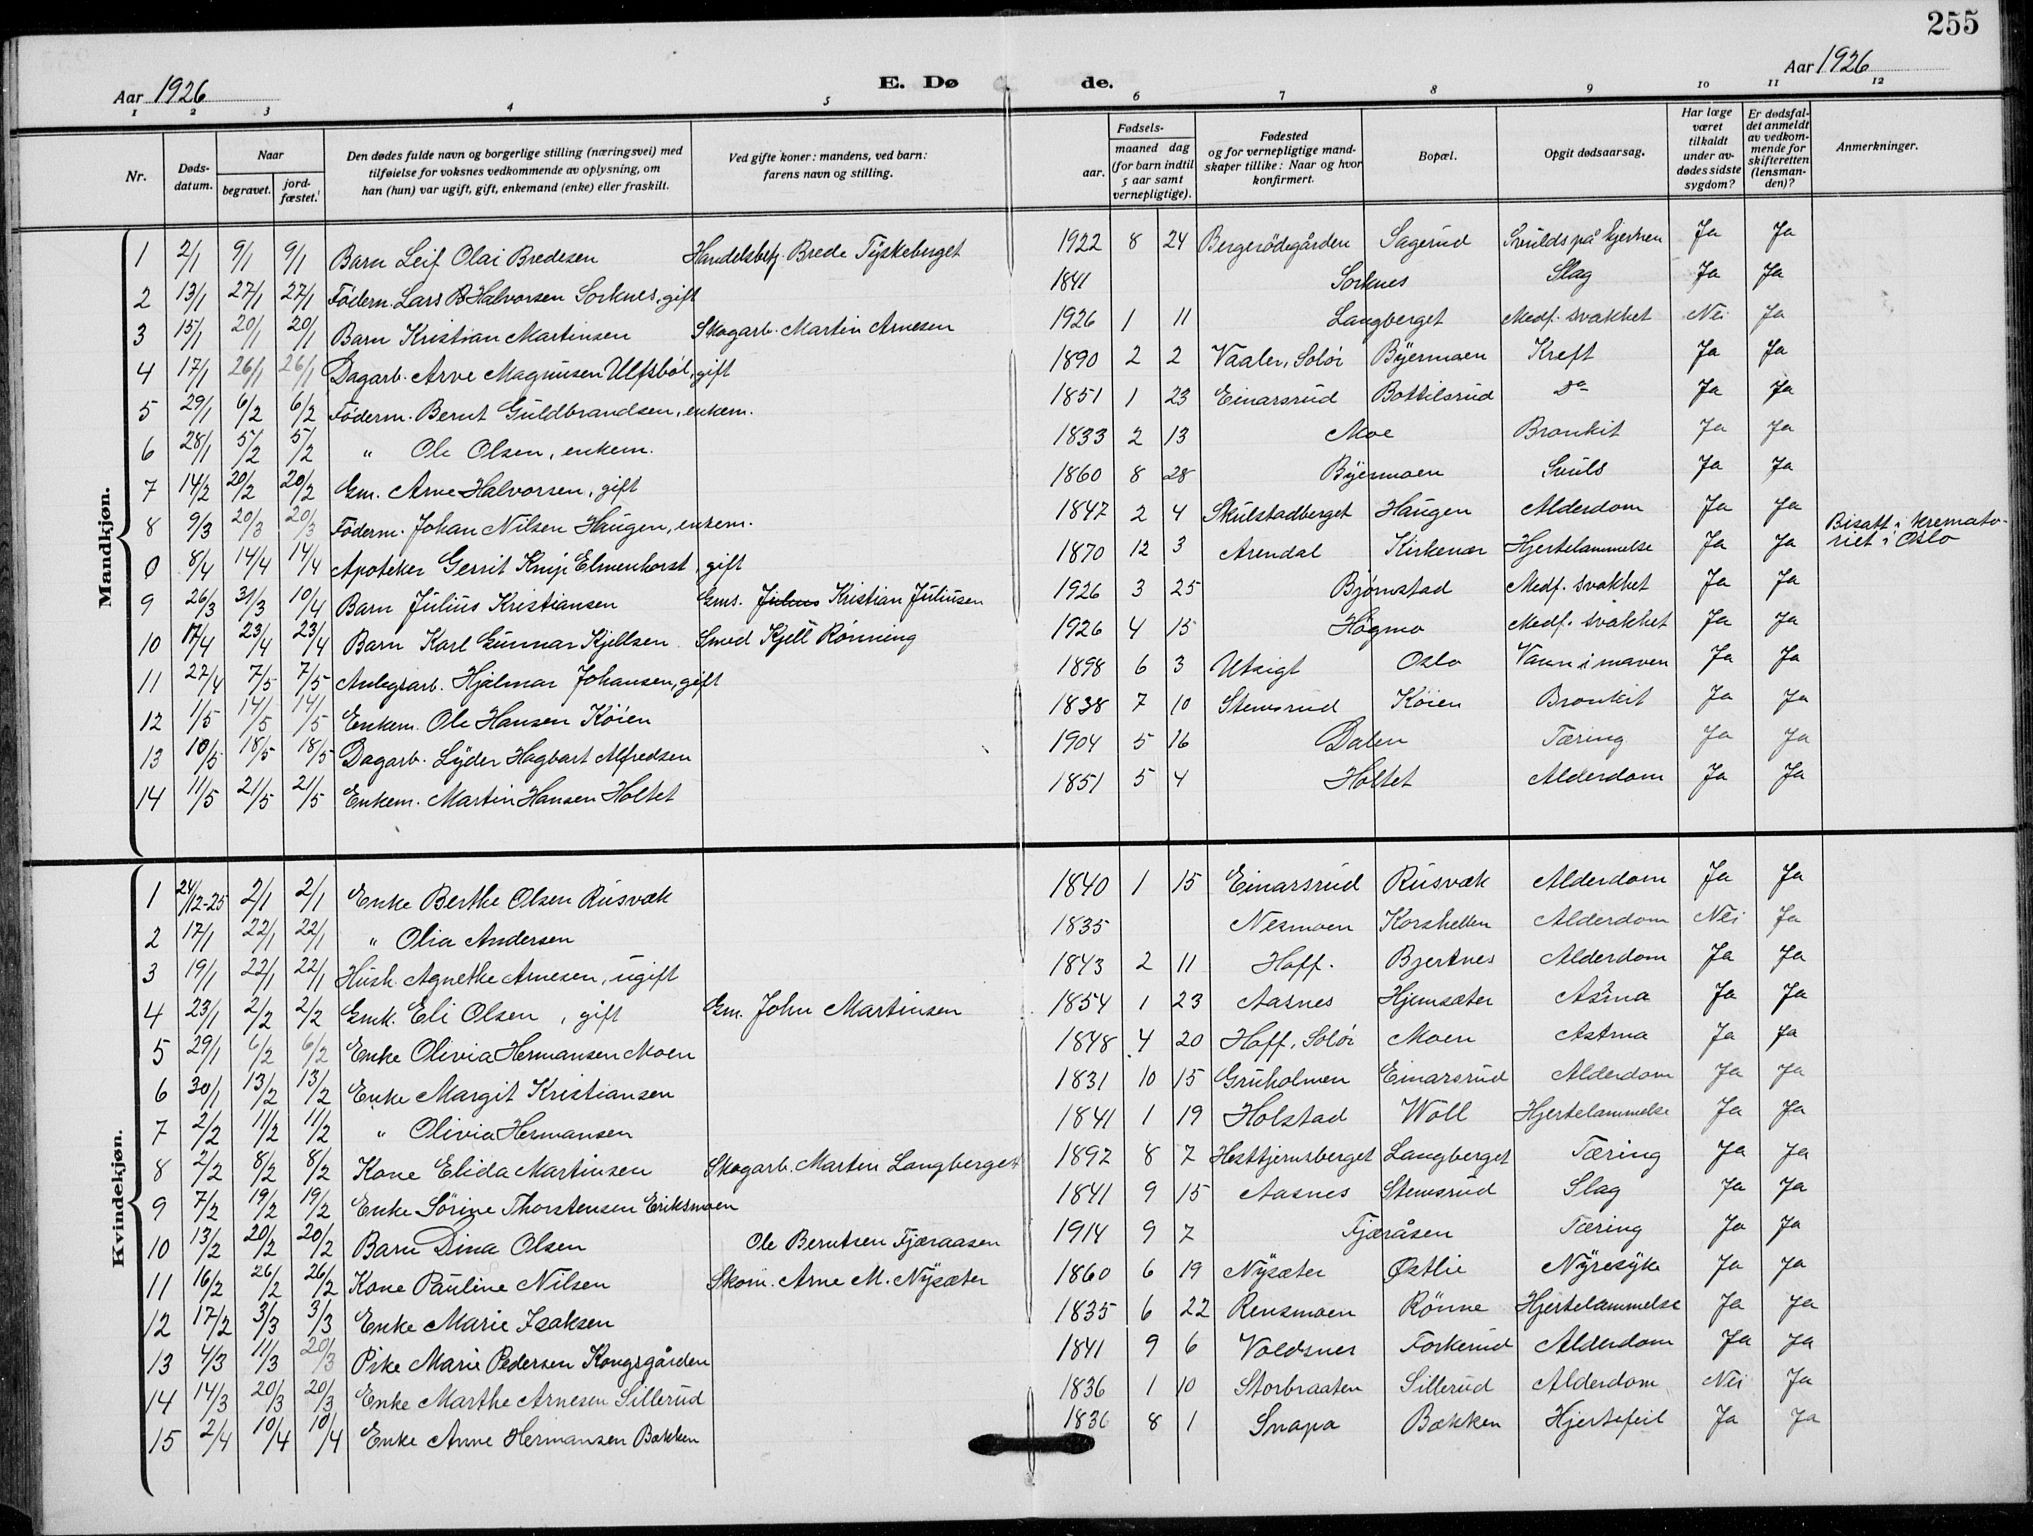 255
Aar 1926
E. Døde.
Aar 1926
1 2 3 4 5 6 7 8 9 10 11 12
Nr.
Døds-datum.
Naar
begravet.
jord-fæstet.¹
Den dødes fulde navn og borgerlige stilling (næringsvei) med tilføielse for voksnes vedkommende av oplysning, om han (hun) var ugift, gift, enkemand (enke) eller fraskilt.
Ved gifte koner: mandens, ved barn: farens navn og stilling.
Fødsels-
aar.
maaned dag (for barn indtil 5 aar samt vernepligtige).
Fødested og for vernepligtige mandskaper tillike: Naar og hvor konfirmert.
Bopæl.
Opgit dødsaarsag.
Har læge været tilkaldt under avdødes sidste sygdom?
Er dødsfaldet anmeldt av vedkommende for skifteretten (lensmanden)?
Anmerkninger.
Mandkjøn.
1 2/1 9/1 9/1 Barn Leif Olai Bredesen Handelsbetj. Brede Tyskeberget 1922 8 24 Bergerödegården Sagerud Svulds på hjernen Ja Ja
2 13/1 27/1 27/1 Föderm. Lars B Halvorsen Sorknes, gift 1841 Sorknes Slag Ja Ja
3 15/1 20/1 20/1 Barn Kristian Martinsen Skogarb. Martin Arnesen 1926 1 11 Langberget Medf. svakhet Nei Ja
4 17/1 26/1 26/1 Dagarb. Arve Magnusen Ulfsböl, gift 1890 2 2 Vaaler, Solör Byermoen Kreft Ja Ja
5 29/1 6/2 6/2 Föderm. Bernt Guldbrandsen, enkem. 1851 1 23 Einarsrud Bottilsrud Do Ja Ja
6 28/1 5/2 5/2 " Ole Olsen, enkem. 1833 2 13 Moe Bronkit Ja Ja
7 14/2 20/2 20/2 Gm. Arne Halvorsen, gift 1860 8 28 Byermoen Svuls Ja Ja
8 9/3 20/3 20/3 Föderm. Johan Nilsen Haugen, enkem. 1847 2 4 Skulstadberget Haugen Alderdom Ja Ja
0 8/4 14/4 14/4 Apoteker Gerrit Knip Elmenhorst, gift 1870 12 3 Arendal Kirkenær Hjertelammelse Ja Ja Bisatt i krematoriet i Oslo
9 26/3 31/3 10/4 Barn Julius Kristiansen Gms. Julius Kristian Juliusen 1926 3 25 Bjørnstad Medf. svakhet Ja Ja
10 17/4 23/4 23/4 Barn Karl Gunnar Kjellsen Smed Kjell Rönning 1926 4 15 Högmo Medf. svakhet Ja Ja
11 22/4 7/5 7/5 Anlegsarb. Hjalmar Johansen, gift 1898 6 3 Utsigt Oslo Vann i maven Ja Ja
12 1/5 14/5 14/5 Enkem. Ole Hansen Köien 1838 7 10 Stemsrud Köien Bronkit Ja Ja
13 10/5 18/5 18/5 Dagarb. Lyder Hagbart Alfredsen 1904 5 16 Dalen Tæring Ja Ja
14 11/5 21/5 21/5 Enkem. Martin Hansen Holtet 1851 5 4 Holtet Alderdom Ja Ja
Kvindekjøn.
1 24/12-25 2/1 2/1 Enke Berthe Olsen Rusvæk 1840 1 15 Einarsrud Rusvæk Alderdom Ja Ja
2 17/1 22/1 22/1 " Olia Andersen 1835 Nesmoen Korshellen Alderdom Nei Ja
3 19/1 22/1 22/1 Hush. Agnethe Arnesen, ugift 1843 2 11 Hoff. Bjertnes Alderdom Ja Ja
4 23/1 2/2 2/2 Gmk. Eli Olsen, gift Gm. John Martinsen 1854 1 23 Aasnes Hjemsæter Astma Ja Ja
5 29/1 6/2 6/2 Enke Olivia Hermansen Moen 1848 4 20 Hoff, Solör Moen Astma Ja Ja
6 30/1 13/2 13/2 Enke Margit Kristiansen 1831 10 15 Gruholmen Einarsrud Alderdom Ja Ja
7 2/2 11/2 11/2 " Olivia Hermansen 1841 1 19 Holstad Woll Hjertelammelse Ja Ja
8 2/2 8/2 8/2 Kone Elida Martinsen Skogarb. Martin Langberget 1892 8 7 Hesttjernsberget Langberget Tæring Ja Ja
9 7/2 19/2 19/2 Enke Sörine Thorstensen Eriksmoen 1841 9 15 Aasnes Stemsrud Slag Ja Ja
10 13/2 20/2 20/2 Barn Dina Olsen Ole Berntsen Fjæraasen 1914 9 7 Fjæråsen Tæring Ja Ja
11 16/2 26/2 26/2 Kone Pauline Nilsen Skom. Arne M. Nysæter 1860 6 19 Nysæter Østlie Nyresyke Ja Ja
12 17/2 3/3 3/3 Enke Marie Isaksen 1835 6 22 Rensmoen Rönne Hjertelammelse Ja Ja
13 4/3 11/3 20/3 Pike Marie Pedersen Kongsgården 1841 9 6 Voldsnes Forkerud Alderdom Ja Ja
14 14/3 20/3 20/3 Enke Marthe Arnesen Sillerud 1836 1 10 Storbraaten Sillerud Alderdom Nei Ja
15 2/4 10/4 10/4 Enke Anne Hermansen Bækken 1836 8 1 Snapa Bækken Hjertefeil Ja Ja